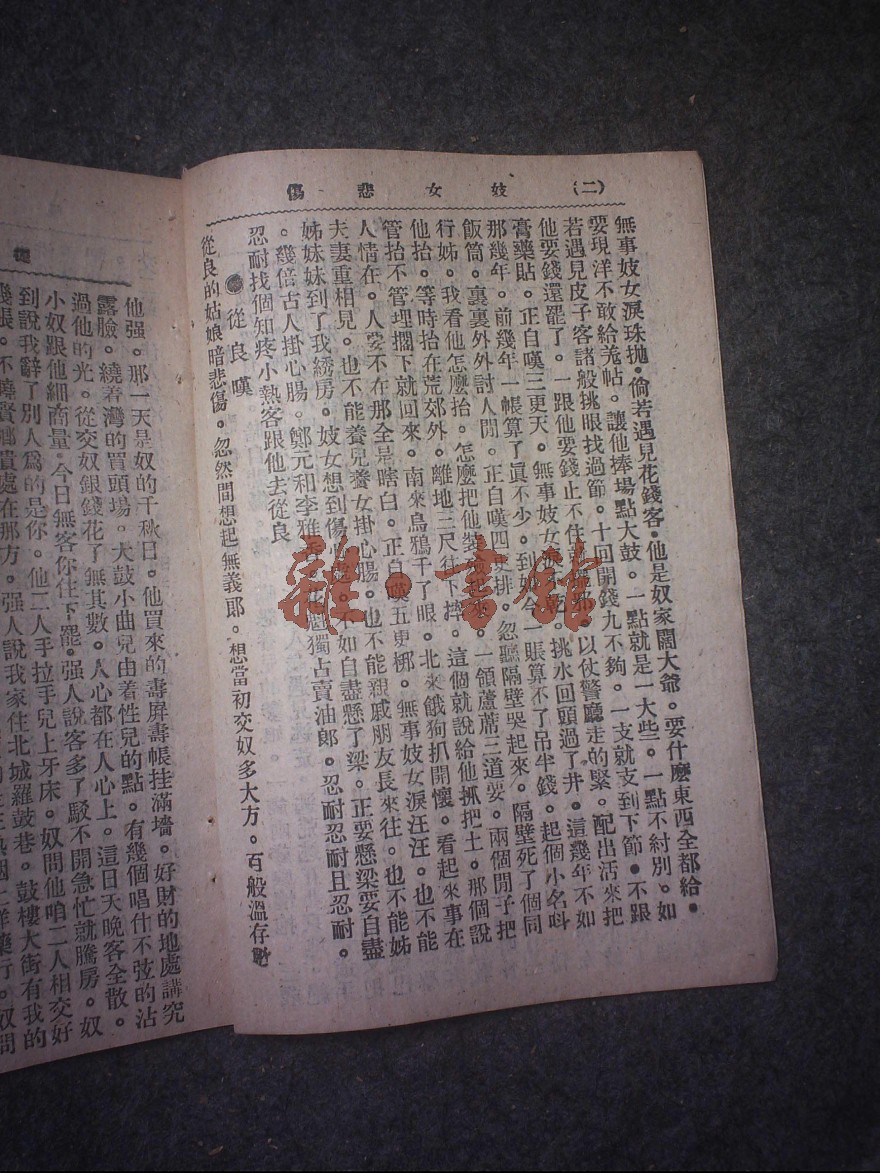 妓女悲傷 (二)
無事妓女淚珠拋。倘若遇見花錢客。他是奴家闊大爺。要什麽東西全都給。
要現洋不敢給羌帖。讓他捧場點大鼓。一點就是一大些。一點不紂別。如
若遇見皮子客諸般挑眼找過節。十回開錢九不夠。一支就支到下節。不跟
他要錢還罷了。一跟他要錢止不住就 以仗警廳走的緊。配出活來把
膏藥貼。正白嘆三更天。無事妓女淚不乾。挑水回頭過了井。這幾年不如
那幾年。前幾年一帳算了眞不少。到如今一賬算不了吊半錢。起個小名呌
飯筒。裏裏外外討人閒。正白嘆四更排。忽聽隔壁哭起來。隔壁死了個同
行姊。我看他怎麽抬。怎麽把他裝 起來。一領蘆蓆三道要。兩個閒子把
他抬。等時抬在荒郊外。離地三尺往下摔。這個就說給他抓把土。那個說
管抬不管埋擱下就回來。南來烏鴉千了眼。北來餓狗抓開懷。看起來事在
人情在。人要不在那全是瞎白。正白嘆五更梆。無事妓女淚汪汪。也不能
夫妻重相見。也不能養兒養女掛心腸。也不能親戚朋友長來往。也不能姊
姊妹妹到了我綉房。妓女想到傷心處。不如自盡懸了梁。正要懸梁要自盡
。幾倍古人掛心腸。鄭元和李雅香。花魁獨占賣油郎。忍耐忍耐且忍耐。
忍耐找個知疼小熱客跟他去從良
●從良嘆
從良的姑娘暗悲傷。忽然間想起無義郎。想當初交奴多大方。百般溫存
他强。那一天是奴的千秋日。他買來的壽屏壽帳挂滿墻。好財的地處講究
露臉。繞着灣的買頭場。大鼓小曲兒由着性兒的點。有幾個唱什不弦的沾
過他的光。從交奴銀錢花了無其數。人心都在人心上。這日天晚客全散。
小奴跟他細商量。今日無客你住下罷。强人說客多了駁不開急忙就騰房。奴
到說我辭了別人爲的是你。他二人手拉手兒上牙床。奴問他咱二人相交好
幾張。不曉賢鄉貴處在那方。强人說我家住北城羅鼓巷。鼓樓大街有我的
雜·書館